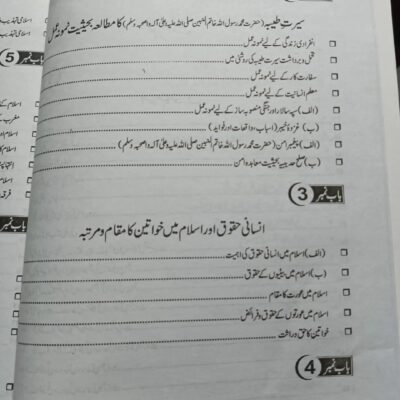 سیرت طیبہ (حضرت محمد رسول اللہ خاتم النبیین صلی اللہ علیہ وعلی آلہ واصحبہ وسلم) کا مطالعہ بحیثیت نمونہ عمل
انفرادی زندگی کے لیے نمونہ عمل
تحمل و برداشت سیرت طیبہ کی روشنی میں
سفارت کار کے لیے نمونہ عمل
معلم انسانیت کے لیے نمونہ عمل
(الف) سپہ سالار اور جنگی منصوبہ ساز کے لیے نمونہ عمل
(ب) غزوۂ خیبر (اسباب، واقعات اور فوائد)
(الف) پیغمبر امن (حضرت محمد رسول اللہ خاتم النبیین صلی اللہ علیہ وعلی آلہ واصحبہ وسلم)
(ب) صلح حدیبیہ بحیثیت معاہدہ امن
باب نمبر 3
انسانی حقوق اور اسلام میں خواتین کا مقام و مرتبہ
(الف) اسلام میں انسانی حقوق کی اہمیت
(ب) اسلام میں بیٹیوں کے حقوق
اسلام میں عورت کا مقام
اسلام میں عورتوں کے حقوق و فرائض
خواتین کا حق وراثت
باب نمبر 4
اسلامی تہذیب
باب نمبر 5
اسلام کے
مغرب کے
اسلام اور